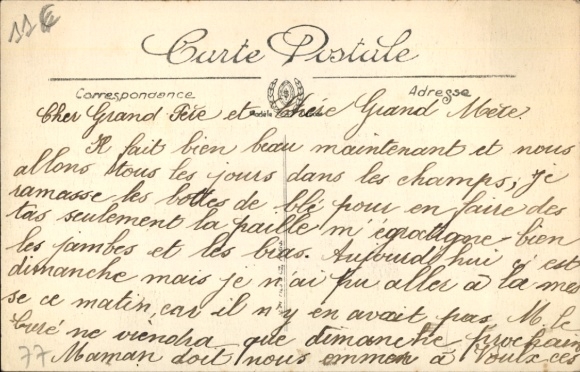 Carte Postale
Correspondance
Adresse
Cher Grand Père et Chère Grand Mère.
Il fait bien beau maintenant et nous
allons tous les jours dans les champs; je
ramasse les bottes de blé pour en faire des
tas seulement la paille m'egratigne bien
les jambes et les bras. Aujourd'hui c'est
dimanche mais je n'ai pu aller à la mes
se ce matin, car il n'y en avait pas M. le
Curé ne viendra que dimanche prochain
Maman doit nous emmener à Voulx ces
77